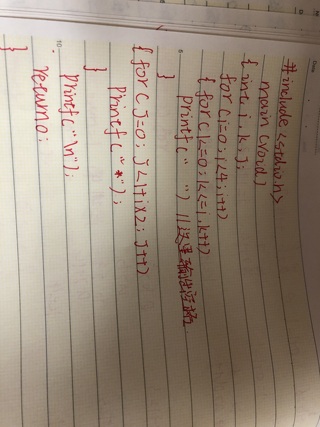 #include <stdio.h>
main (void)
{ int i, k, j;
for (i=0; i<4; i++)
{ for (k=0; k<=i, k++)
printf(" ") //这里输出空格
}
{ for (j=0; j<1+i×2; j++)
printf("*");
}
printf("\n");
return 0;
}